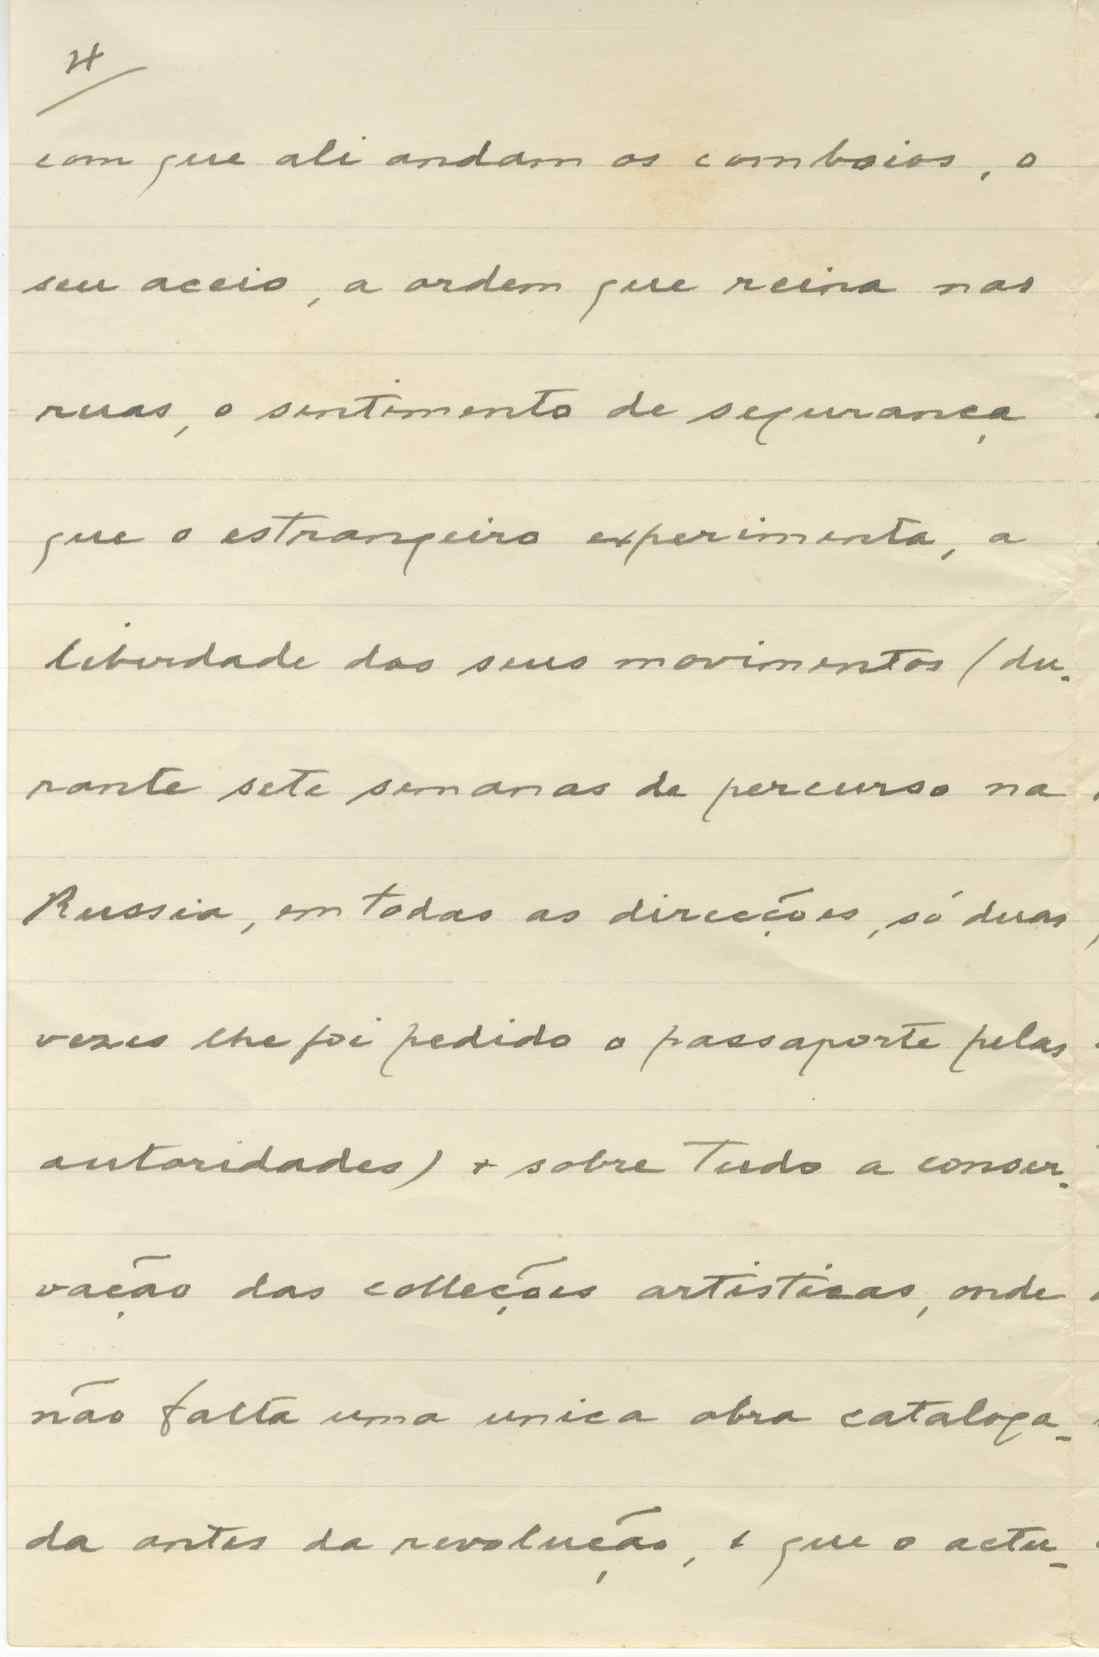 4
com que ali andam os comboios, o
seu aceio, a ordem que reina nas
ruas, o sentimento de segurança
que o estrangeiro experimenta, a
liberdade dos seus movimentos (du-
rante sete semanas de percurso na
Russia, em todas as direcções, só duas
vezes lhe foi pedido o passaporte pelas
autoridades) + sobre tudo a conser-
vação das colleções artisticas, onde
não falta uma unica obra cataloga-
da antes da revolução, e que o actu-